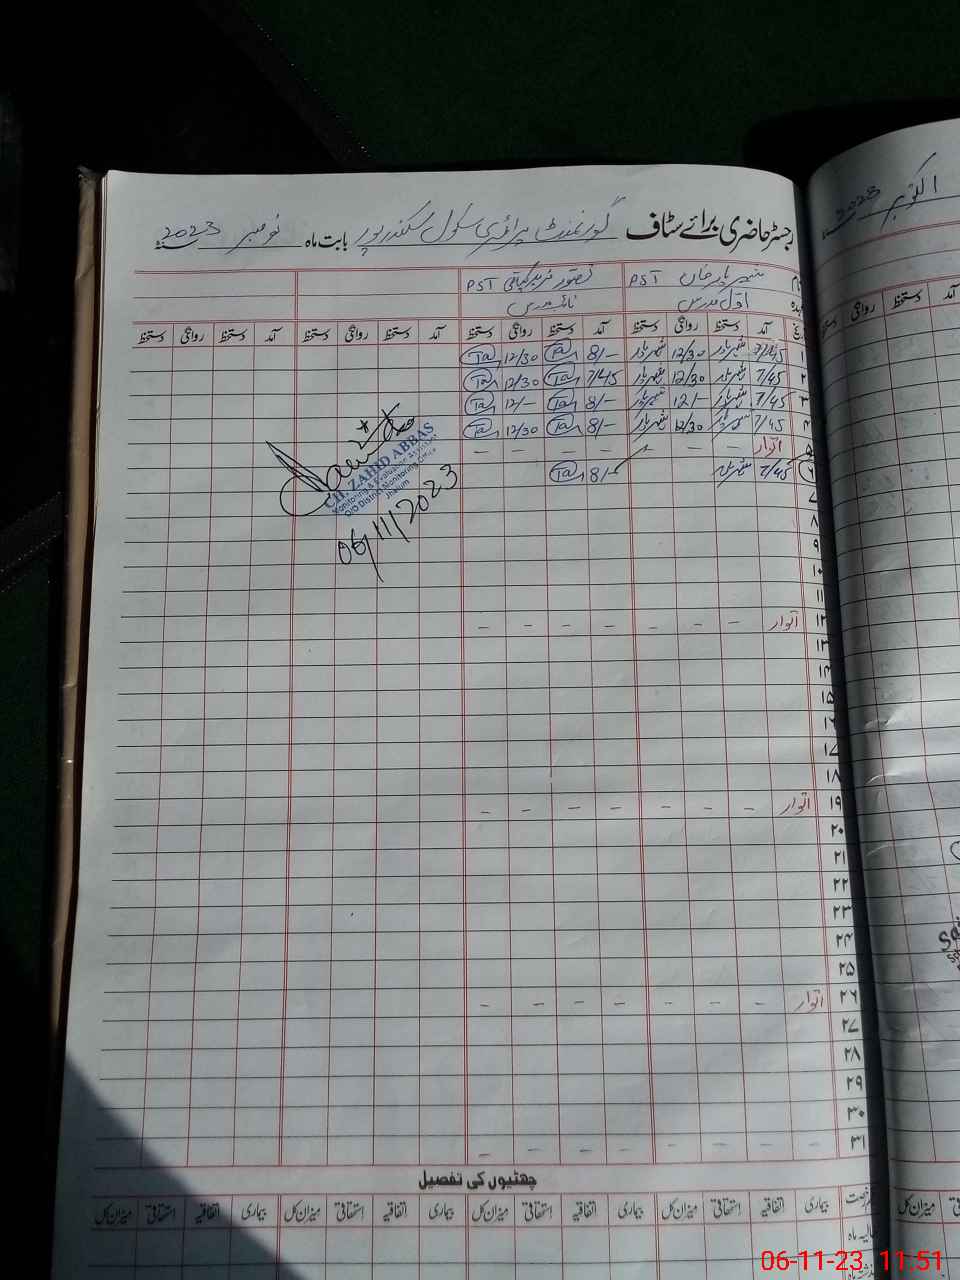 رجسٹر حاضری برائے سٹاف گورنمنٹ پرائمری سکول سکندرپور بابت ماہ نومبر 2023
اکتوبر 2023
نام شہریار خان PST تصور PST
عہدہ اول مدرس نائب مدرس
تاریخ آمد دستخط روانگی دستخط آمد دستخط روانگی دستخط آمد دستخط روانگی دستخط آمد دستخط روانگی دستخط
۱ 7/45 شہریار 12/30 شہریار 8/- 12/30
۲ 7/45 شہریار 12/30 شہریار 7/45 12/30
۳ 7/45 شہریار 12/- شہریار 8/- 12/-
۴ 7/45 شہریار 12/30 شہریار 8/- 12/30
۵ اتوار - - - - - -
۶ 7/45 شہریار 8/-
CH. ZAHID ABBAS
Monitoring & Evaluation Assistant
O/O District Monitoring Office
Jhelum
06/11/2023
۷
۸
۹
۱۰
۱۱
۱۲ اتوار - - - - - - -
۱۳
۱۴
۱۵
۱۶
۱۷
۱۸
۱۹ اتوار - - - - - - -
۲۰
۲۱
۲۲
۲۳
۲۴
۲۵
۲۶ اتوار - - - - - - -
۲۷
۲۸
۲۹
۳۰
۳۱ - - - - - - - -
چھٹیوں کی تفصیل
قسم رخصت بیماری اتفاقیہ استحقاقی میزان کل بیماری اتفاقیہ استحقاقی میزان کل بیماری اتفاقیہ استحقاقی میزان کل بیماری اتفاقیہ استحقاقی میزان کل
حالیہ ماہ
گذشتہ ماہ
06-11-23 11:51